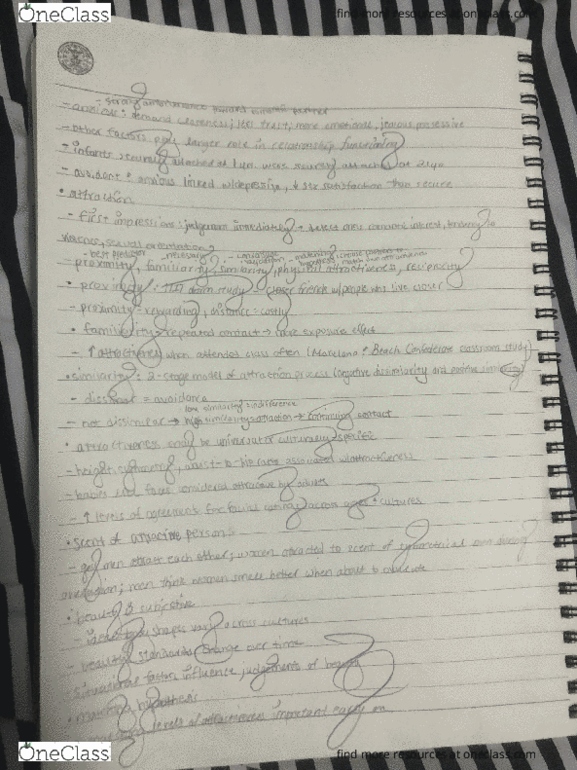 OneClass
find more resources at oneclass.com
- strong ambivalence toward romantic partner
demand closeness; less trust; more emotional, jealous, possessive
- other factors play larger role in relationship functioning
- infants securely attached at 1 yr. were securely attached at 21 yo
- avoidant + anxious linked w/ depressive, ↓ sex satisfaction than secure
• attraction
- first impressions: judgement immediately → detect ones romantic interest,
sexual orientation?
- best predictor - necessary
- proximity, familiarity, similarity, physical attractiveness, reciprocity
• proximity: dorm study - closer friends w/ people who live closer
- proximity = rewarding, distance = costly
• familiarity = repeated contact → mere exposure effect
- ↑ attractiveness when attended class often (Moreland & Beach Confederate classroom study)
• similarity: 2-stage model of attraction process (negative dissimilarity and positive similarity)
- dissimilar = avoidance
low similarity = indifference
- not dissimilar → high similarity = attraction → continuing contact
• attractiveness may be universal or culturally specific
- height, symmetry, waist-to-hip ratio associated w/ attractiveness
- babies like faces considered attractive by adults
- ↑ levels of agreements for facial ratings across ages + cultures
• scent of attractive person
- gay men attract each other; women attracted to scent of symmetrical men during
ovulation; men think women smell better when about to ovulate
• beauty is subjective
- ideal body shapes vary across cultures
- beauty standards change over time
- situational factors influence judgements of beauty
• matching hypothesis
levels of attractiveness important early on
OneClass
find more resources at oneclass.com